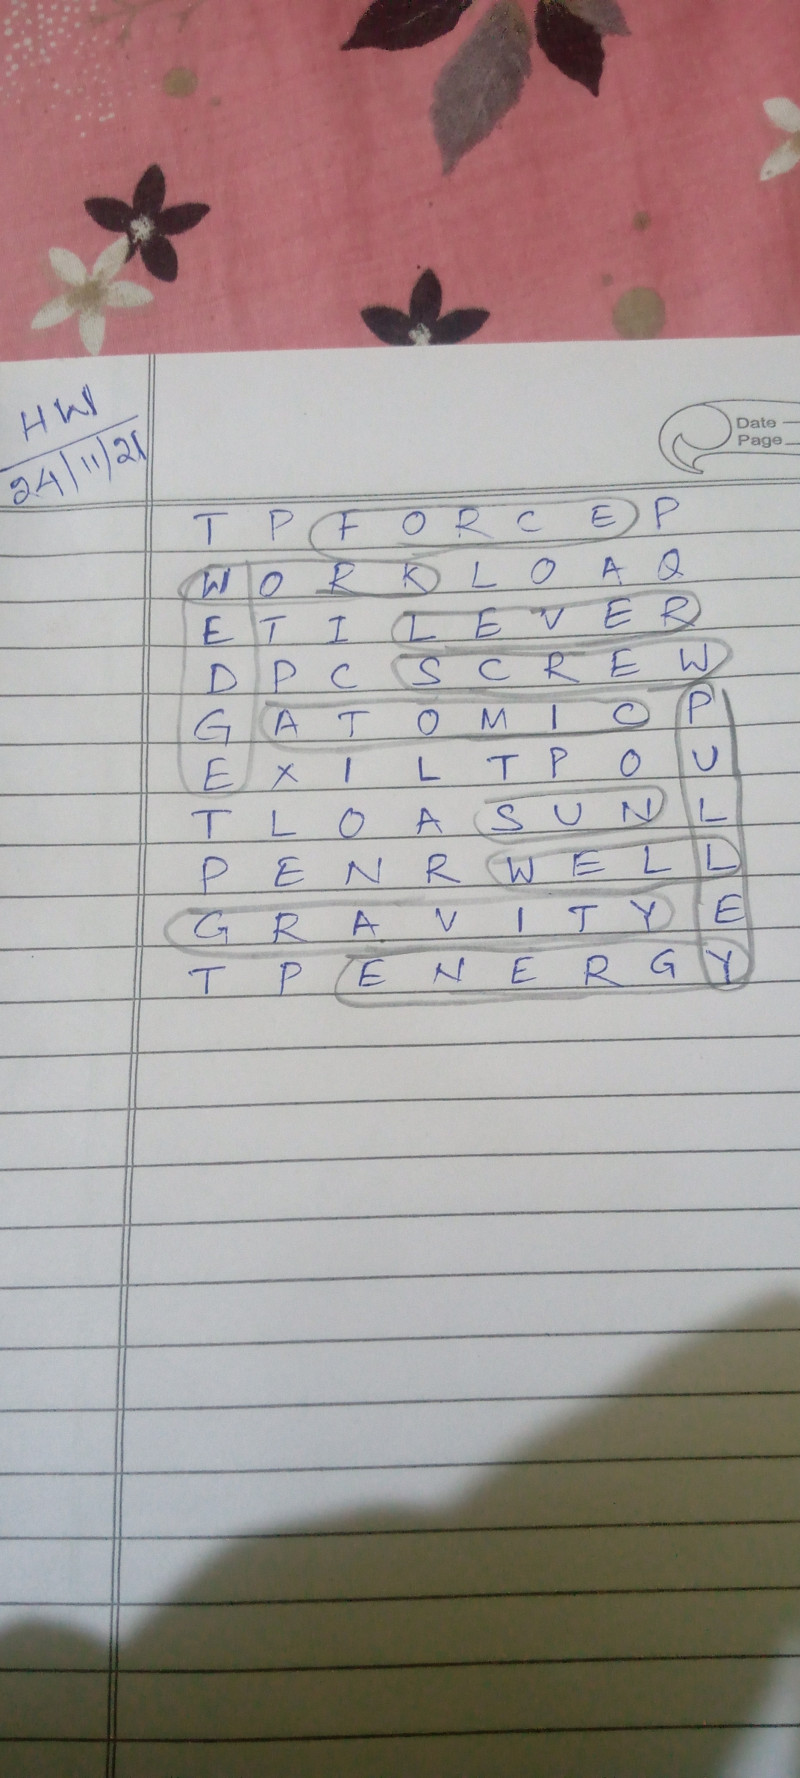 HW
24/11/21
Date
Page
T P F O R C E P
W O R K L O A Q
E T I L E V E R
D P C S C R E W
G A T O M I C P
E X I L T P O U
T L O A S U N L
P E N R W E L L
G R A V I T Y E
T P E N E R G Y